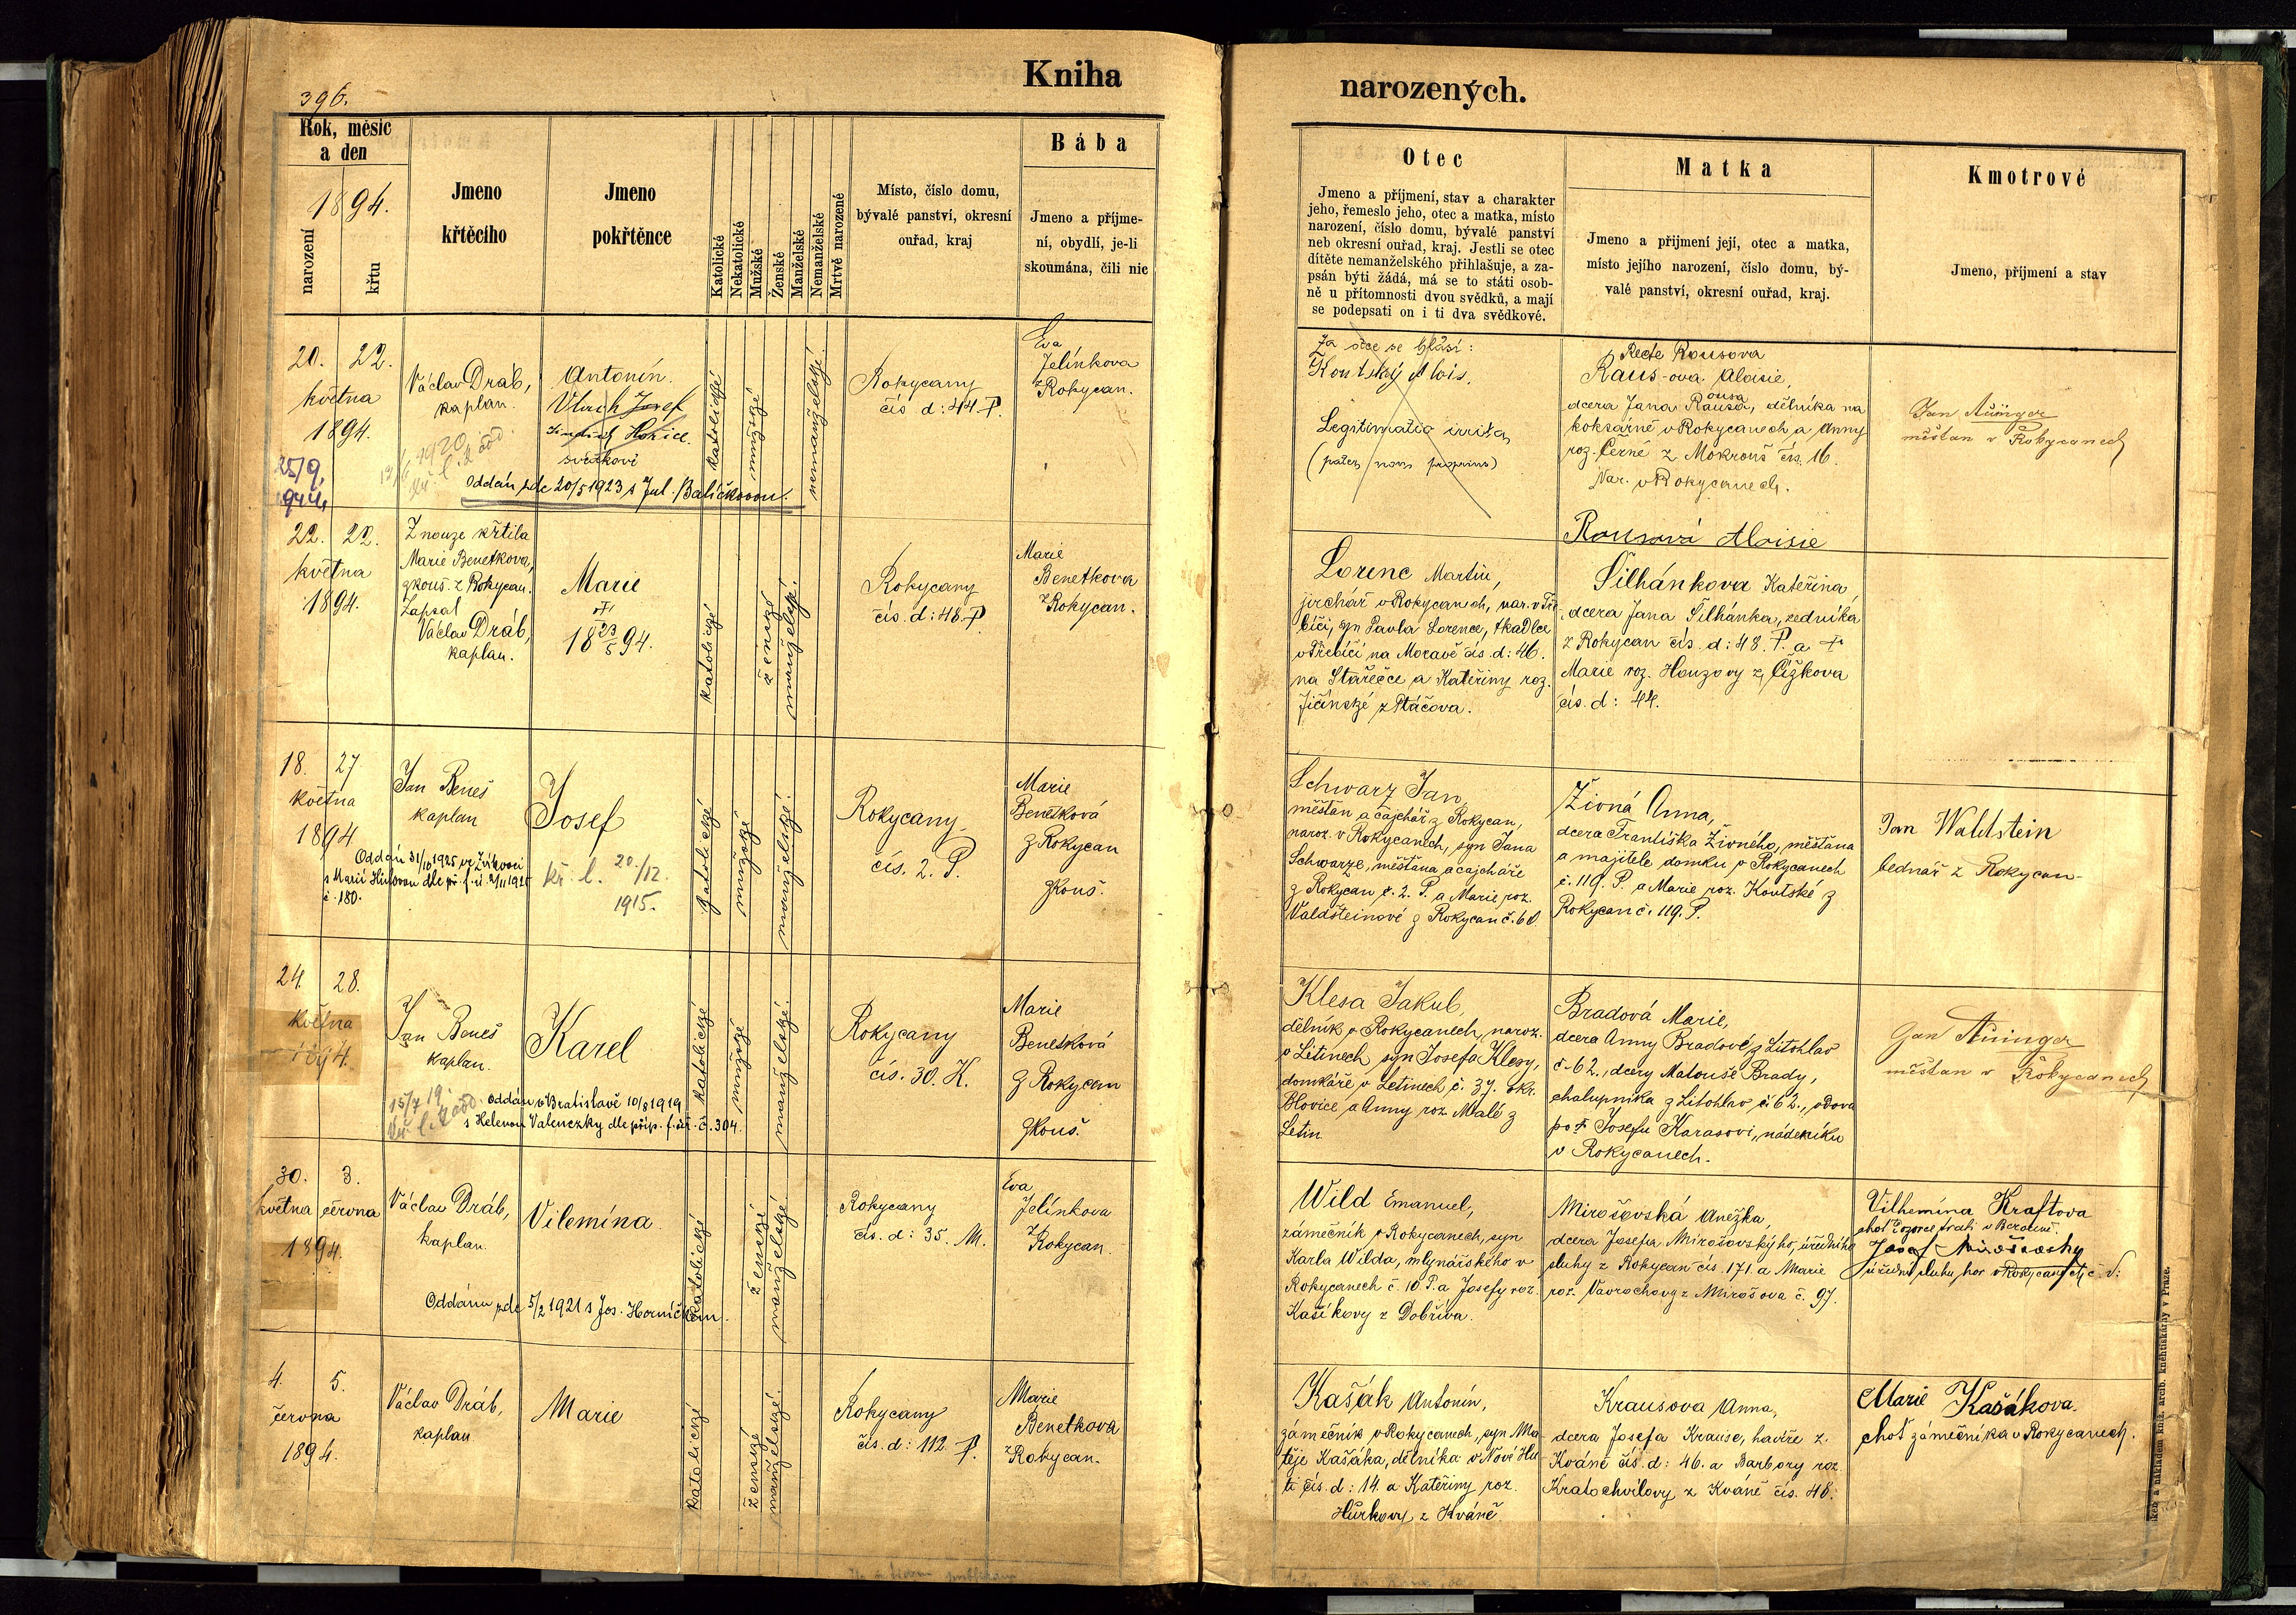 Kniha
narozených.
396.
Rok, měsíc
a den
1894.
narození
křtu
Jmeno
křtěcího
Jmeno
pokřtěnce
Katolické
Nekatolické
Mužské
Ženské
Manželské
Nemanželské
Mrtvě narozené
Místo, číslo domu,
bývalé panství, okresní
ouřad, kraj
Bába
Jmeno a příjme-
ní, obydlí, je-li
skoumána, čili nic
Otec
Jmeno a příjmení, stav a charakter
jeho, řemeslo jeho, otec a matka, místo
narození, číslo domu, bývalé panství
neb okresní ouřad, kraj. Jestli se otec
dítěte nemanželského přihlašuje, a za-
psán býti žádá, má se to státi osob-
ně u přítomnosti dvou svědků, a mají
se podepsati on i ti dva svědkové.
Matka
Jmeno a přijmení její, otec a matka,
místo jejího narození, číslo domu, bý-
valé panství, okresní ouřad, kraj.
Kmotrové
Jmeno, příjmení a stav
20. 22.
května
1894.
25/9.
Václav Dráb,
kaplan.
1920
Antonín.
Josef
svědkové
Oddán zde 20/5 1923 s Jul. Balíčkovou.
katolické
mužské
nemanželské.
Rokycany
čís d: 44 P.
Eva
Jelínkova
z Rokycan.
Za otce se hlásí:
Koutský Alois.
Legitimatio irrita
(pater non proprius)
Recte Rousova
Raus-ova Aloisie,
dcera Jana Rausa, dělníka na
ousa
koksárně v Rokycanech a Anny
roz. Černé z Mokrouš čís. 16.
Nar. v Rokycanech.
Rousová Aloisie
Jan
měšťan v Rokycanech
22. 22.
května
1894.
Z nouze křtila
Marie Benetkova,
zkouš. z Rokycan.
Zapsal
Václav Dráb,
kaplan.
Marie
†
18 23/5 94.
katolické
ženské
manželské.
Rokycany
čís. d: 48 P.
Marie
Benetkova
z Rokycan.
Lorenc Martin,
jirchář v Rokycanech, nar. v Tře
bíči, syn Pavla Lorence, tkadlce
v Třebíči na Moravě čís. d: 46.
na Stařečce a Kateřiny roz.
Jičínské z Ptáčova.
Šilhánkova Kateřina,
dcera Jana Šilhánka, zedníka
z Rokycan čís. d: 48. P. a †
Marie roz. Houzovy z Čížkova
čís. d: 44.
18. 27
května
1894
Jan Beneš
kaplan
Oddán 31/10 1925 ve Zvíkovci
s Marií dle př. f. ú. 2/11 1925
č. 180.
Josef
kř. l. 20./12.
1915.
katolické
mužské
manželské.
Rokycany
čís. 2. P.
Marie
Benetková
z Rokycan
zkouš.
Schwarz Jan,
měšťan a cajchář z Rokycan,
naroz. v Rokycanech, syn Jana
Schwarze, měšťana a cajcháře
z Rokycan č. 2. P. a Marie roz.
Valdšteinové z Rokycan č. 60
Živná Anna,
dcera Františka Živného, měšťana
a majitele domku v Rokycanech
č. 119. P. a Marie roz. Koutské z
Rokycan č. 119. P.
Jan Waldstein
bednář z Rokycan
24. 28.
května
1894.
Jan Beneš
kaplan.
15/7 19
Oddán v Bratislavě 10/8 1919
s Helenou Valenczky dle příp. f. úř. č. 304.
Karel
katolické
mužské
manželské.
Rokycany
čís. 30. K.
Marie
Benetková
z Rokycan
zkouš.
Klesa Jakub,
dělník v Rokycanech, naroz.
v Letinech, syn Josefa Klesy,
domkáře v Letinech č. 37. okr.
Blovice, a Anny roz. Malé z
Letin
Bradová Marie,
dcera Anny Bradové z Litohlav
č. 62., dcery Matouše Brady,
chalupníka z Litohlav č 62., vdova
po † Josefu Karasovi, nádeníku
v Rokycanech.
Jan
měšťan v Rokycanech
30. 3.
května června
1894.
Václav Dráb,
kaplan.
Vilemína.
Oddána zde 5/2 1921 s Jos. Horníčkem.
katolické
ženské
manželské.
Rokycany
čís. d: 35. M.
Eva
Jelínkova
z Rokycan.
Wild Emanuel,
zámečník v Rokycanech, syn
Karla Wilda, mlynářského v
Rokycanech č. 10 P. a Josefy roz.
Kašíkovy z Dobříva.
Mirošovská Anežka,
dcera Josefa Mirošovského, úředního
sluhy z Rokycan čís. 171. a Marie
roz. Vavrochovy z Mirošova č. 97.
Vilhemína Kraftova
choť v Berouně.
Josef Mirošovský
4. 5.
června
1894.
Václav Dráb,
kaplan
Marie
katolické
ženské
manželské.
Rokycany
čís. d: 112. P.
Marie
Benetkova
z Rokycan.
Kašák Antonín,
zámečník v Rokycanech, syn Ma
těje Kašáka, dělníka v Nové Hu
ti čís. d: 14. a Kateřiny roz.
Hůrkovy z Kváně.
Krausova Anna,
dcera Josefa Krause, havíře z
Kváně čís. d: 46. a Barbory roz.
Kratochvílovy z Kváně čís. 48.
Marie Kašákova.
choť zámečníka v Rokycanech.
a nákladem kníž. arcib. knihtiskárny v Praze.